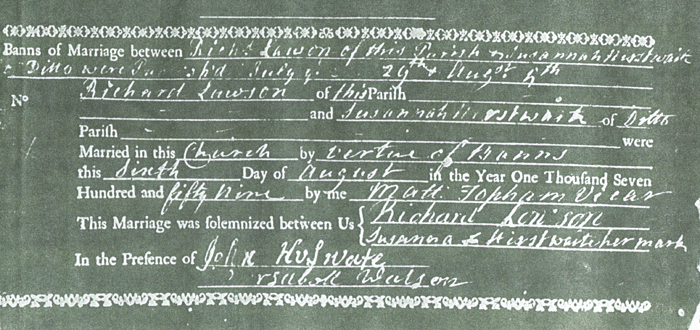 Banns of Marriage between Richd Lawson of this Parish & Susannah Hirstwaite
Ditto were July 29th & Augst 5th
No Richard Lawson of this Parish
and Susannah Hirstwaite of Ditto
Parish were
Married in this Church by Vertue of Banns
this Sixth Day of August in the Year One Thousand Seven
Hundred and fifty Nine by me Matt. Topham Vicar
This Marriage was solemnized between Us Richard
Susanna Hirstwaite her mark
In the Presence of John
Watson